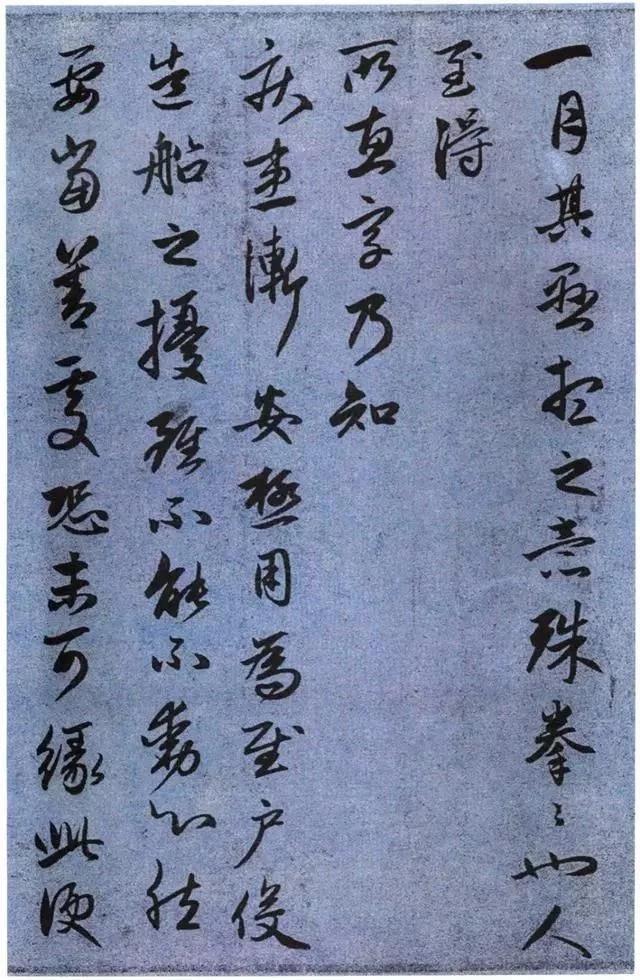 一月其要想之意殊拳々也人
至得
所惠字乃知
疾恙漸安極用為慰户役
造船之擾雖不能不動心然
要當善處恐未可緣此便